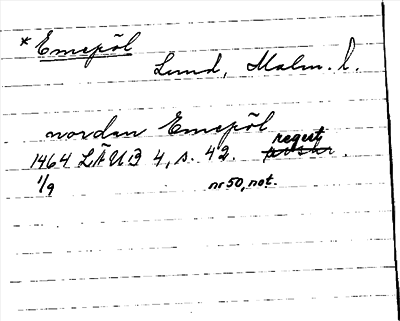 * Emepöl
Lund, Malm. l.
nordan Emepöl
regest
1464 LÄUB 4, s. 42.
1/9 nr 50, not.